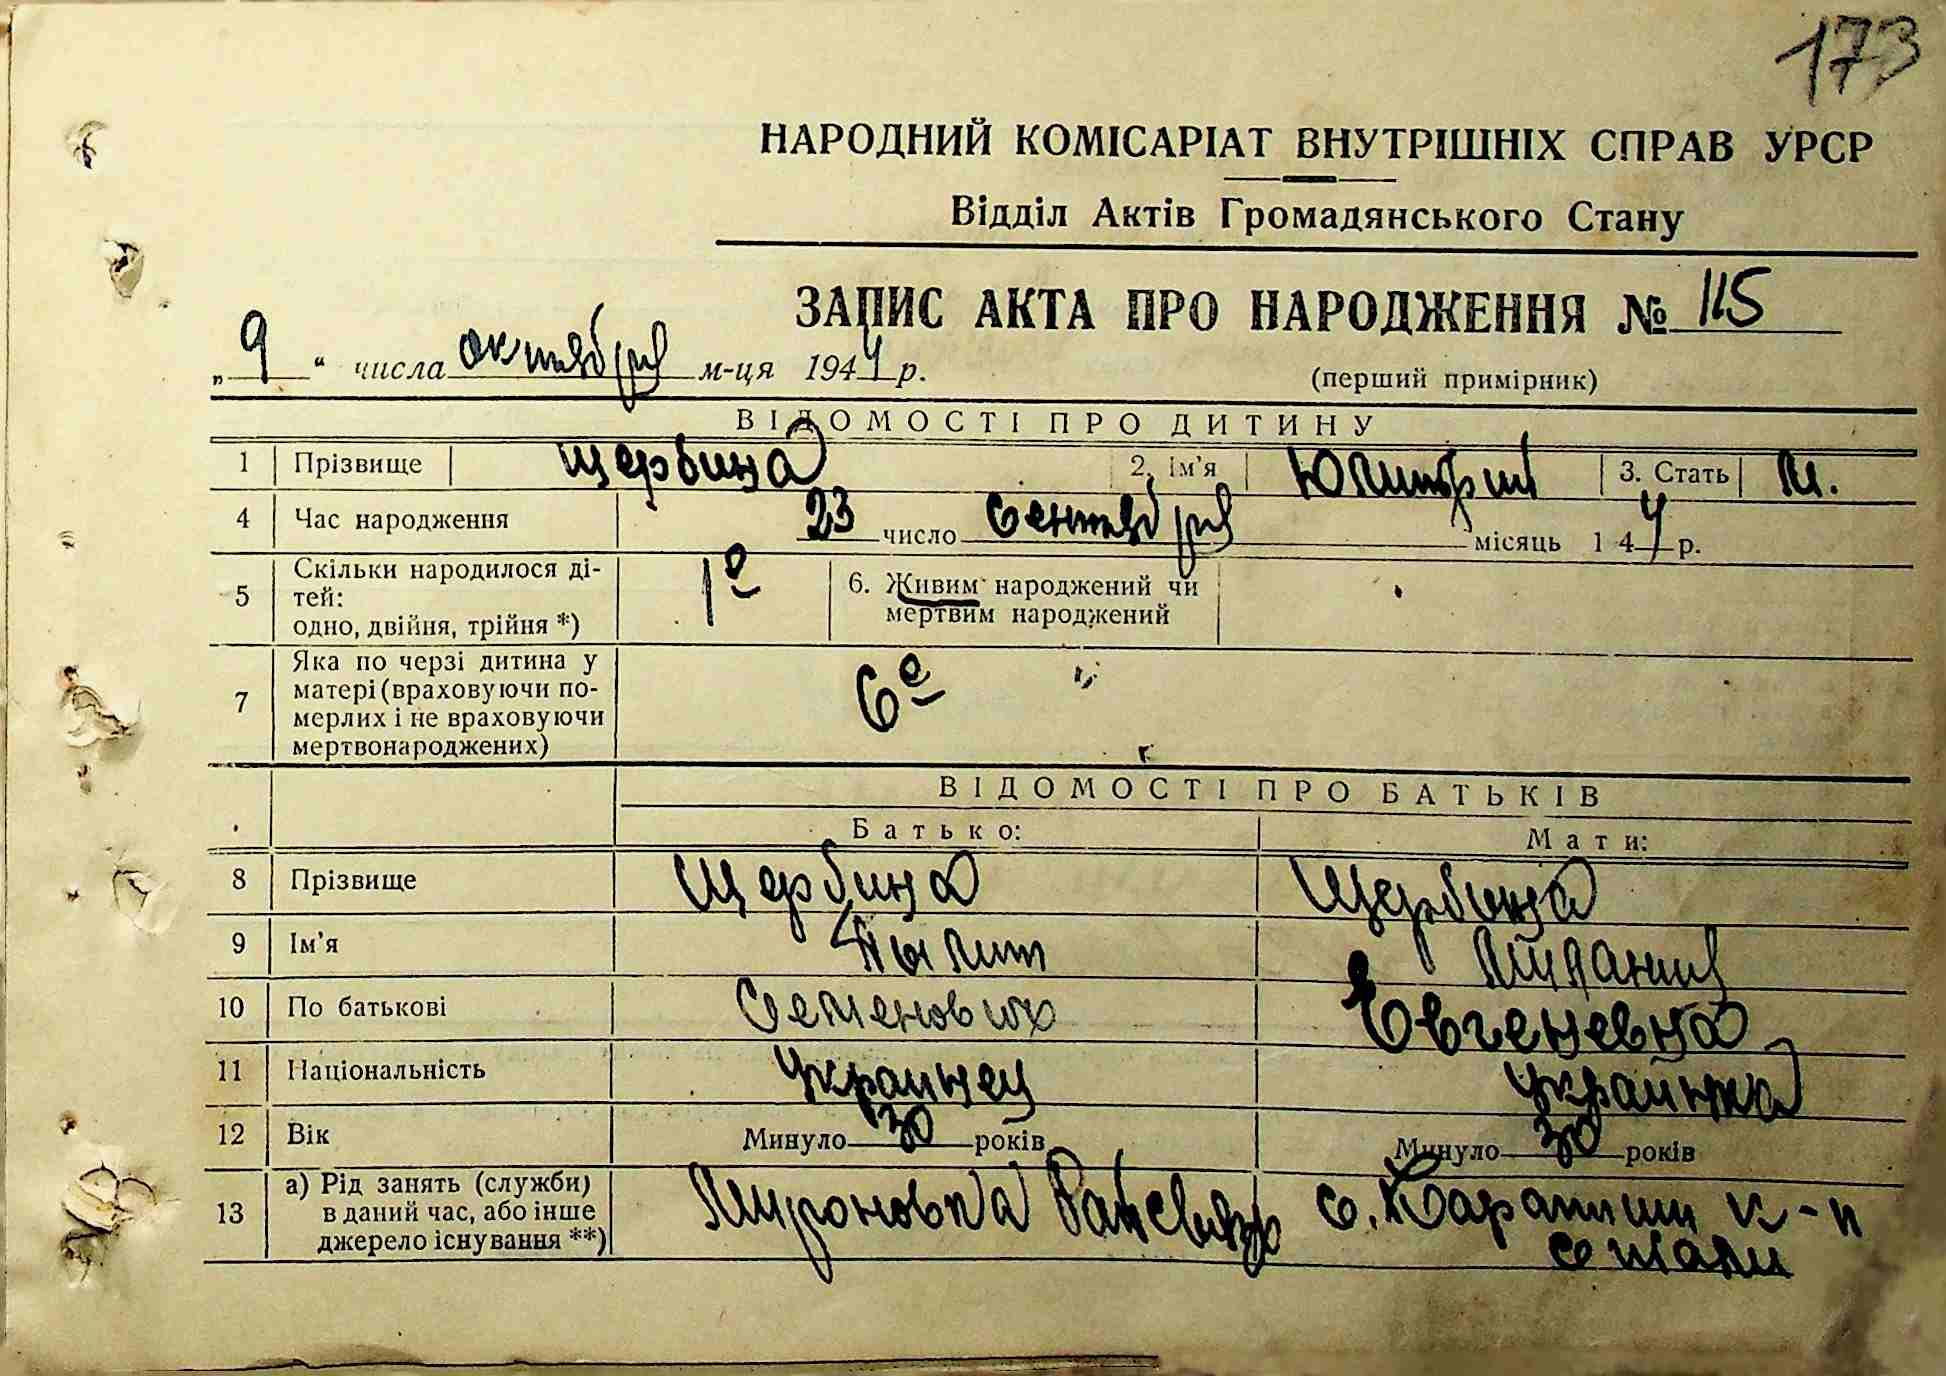 173
НАРОДНИЙ КОМІСАРІАТ ВНУТРІШНІХ СПРАВ УРСР
Відділ Актів Громадянського Стану
ЗАПИС АКТА ПРО НАРОДЖЕННЯ № 115
„9“ числа октября м-ця 1944 р. (перший примірник)
ВІДОМОСТІ ПРО ДИТИНУ
1 Прізвище Щербина 2. Ім'я 3. Стать м.
4 Час народження 23 число сентября місяць 1 44 р.
5 Скільки народилося ді-
тей:
одно, двійня, трійня *) 1е 6. Живим народжений чи
мертвим народжений
7 Яка по черзі дитина у
матері (враховуючи по-
мерлих і не враховуючи
мертвонароджених) 6е
ВІДОМОСТІ ПРО БАТЬКІВ
Батько: Мати:
8 Прізвище Щербина Щербина
9 Ім'я
10 По батькові Семенович Евгеневна
11 Національність украинец украинка
12 Вік Минуло 30 років Минуло 30 років
13 а) Рід занять (служби)
в даний час, або інше
джерело існування **) Мироновка с. Карапиши к-п